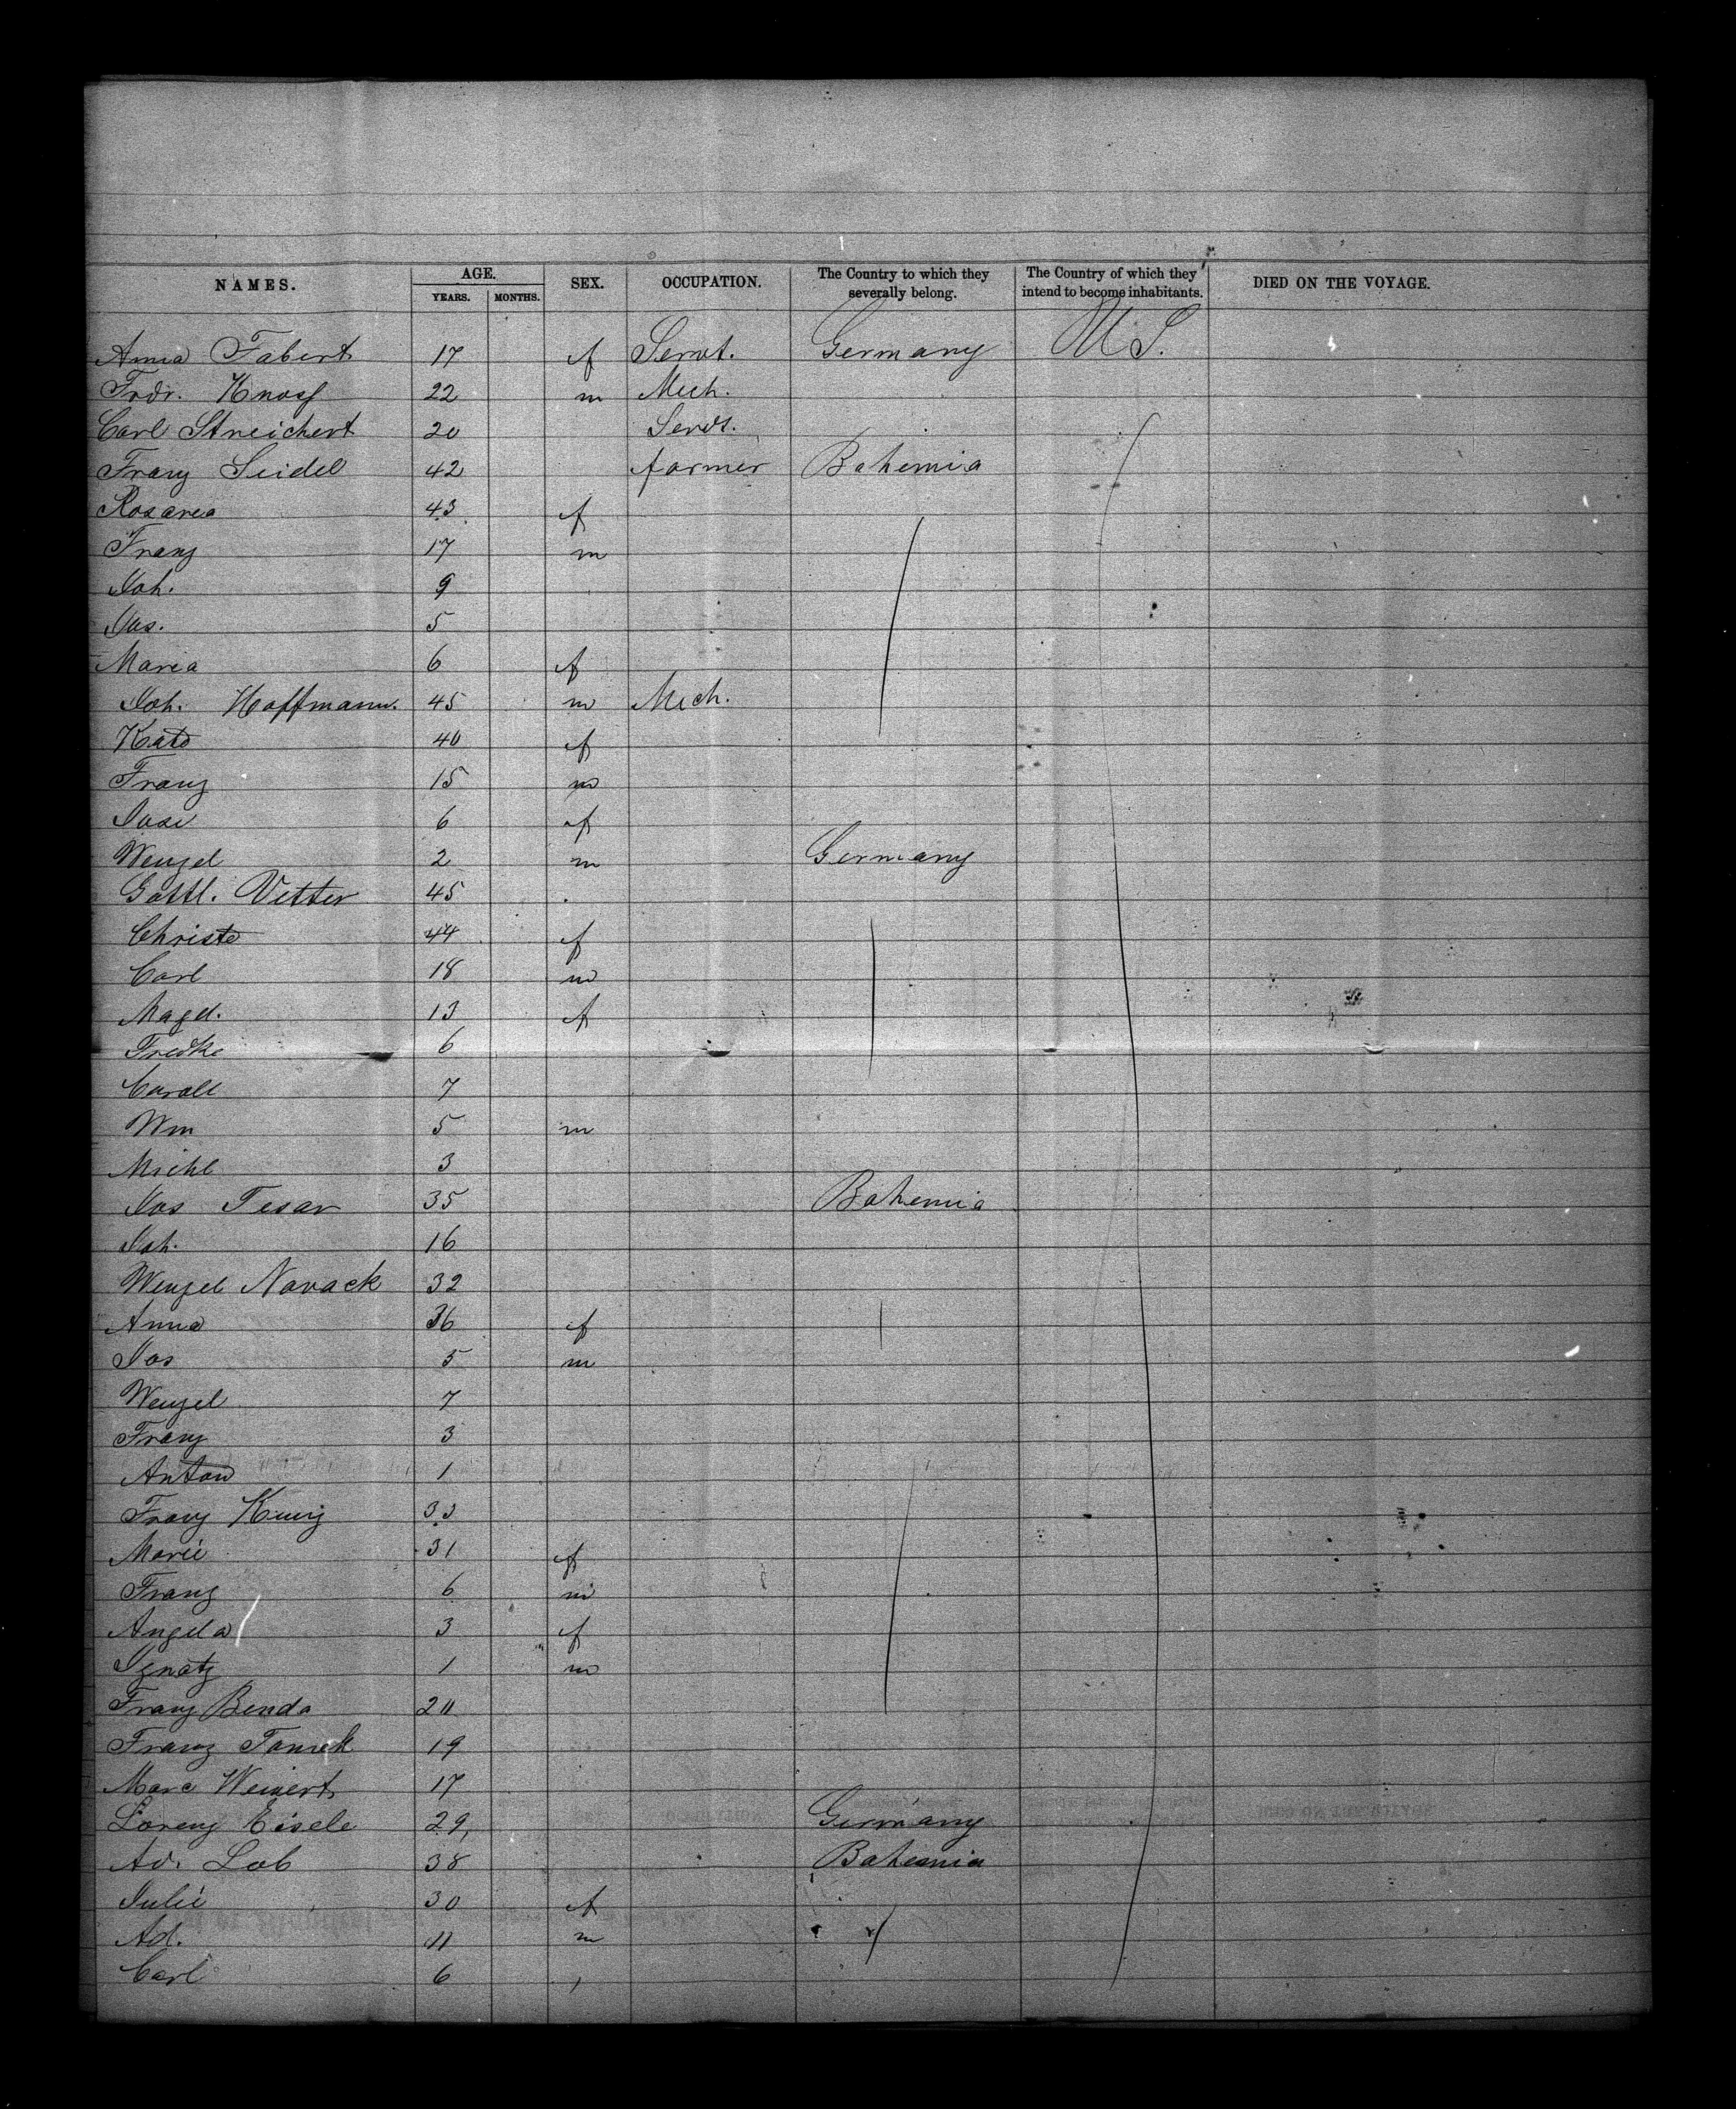 NAMES. AGE. SEX. OCCUPATION. The Country to which they severally belong. The Country of which they intend to become inhabitants. DIED ON THE VOYAGE.
YEARS. MONTHS.
Anna Tabert 17 f Servt. Germany U S.
Frdr. Knopf 22 m Mech.
Carl Streichert 20 Servt.
Franz Seidel 42 farmer Bohemia
Rosarea 43 f
Franz 17 m
Joh. 9
Jos. 5
Maria 6 f
Joh. Hoffmann. 45 m Mech.
Kato 40 f
Franz 15 m
Josi 6 f
Wenzel 2 m Germany
Gottl. Vetter 45
Christe 44 f
Carl 18 m
Magd. 13 f
Fredke 6
Caroll 7
Wm 5 m
Michl 3
Jos Tesar 35 Bohemia
Joh. 16
Wenzel Novack 32
Anna 36 f
Jos 5 m
Wenzel 7
Franz 3
Anton 1
Franz 33
Marie 31 f
Franz 6 m
Angela 3 f
Ignatz 1 m
Franz Benda 20
Franz Tomek 19
Marc Weinert 17
Lorenz Eisele 29, Germany
Ad. Lob 38 Bohemia
Julie 30 f
Ad. 11 m
Carl 6